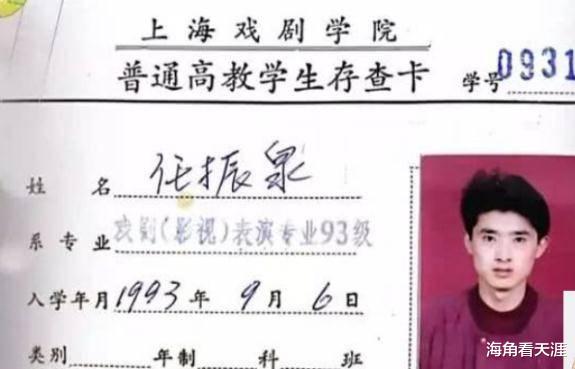 上海戏剧学院
普通高教学生存查卡 学号 0931
姓名 任振泉
系专业 戏剧(影视)表演专业93级
入学年月 1993年9月6日
类别 年制 科 班
海角看天涯